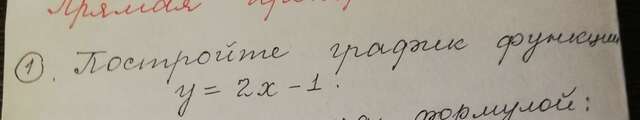 Прямая
① Постройте график функции
y = 2x - 1.
формулой: